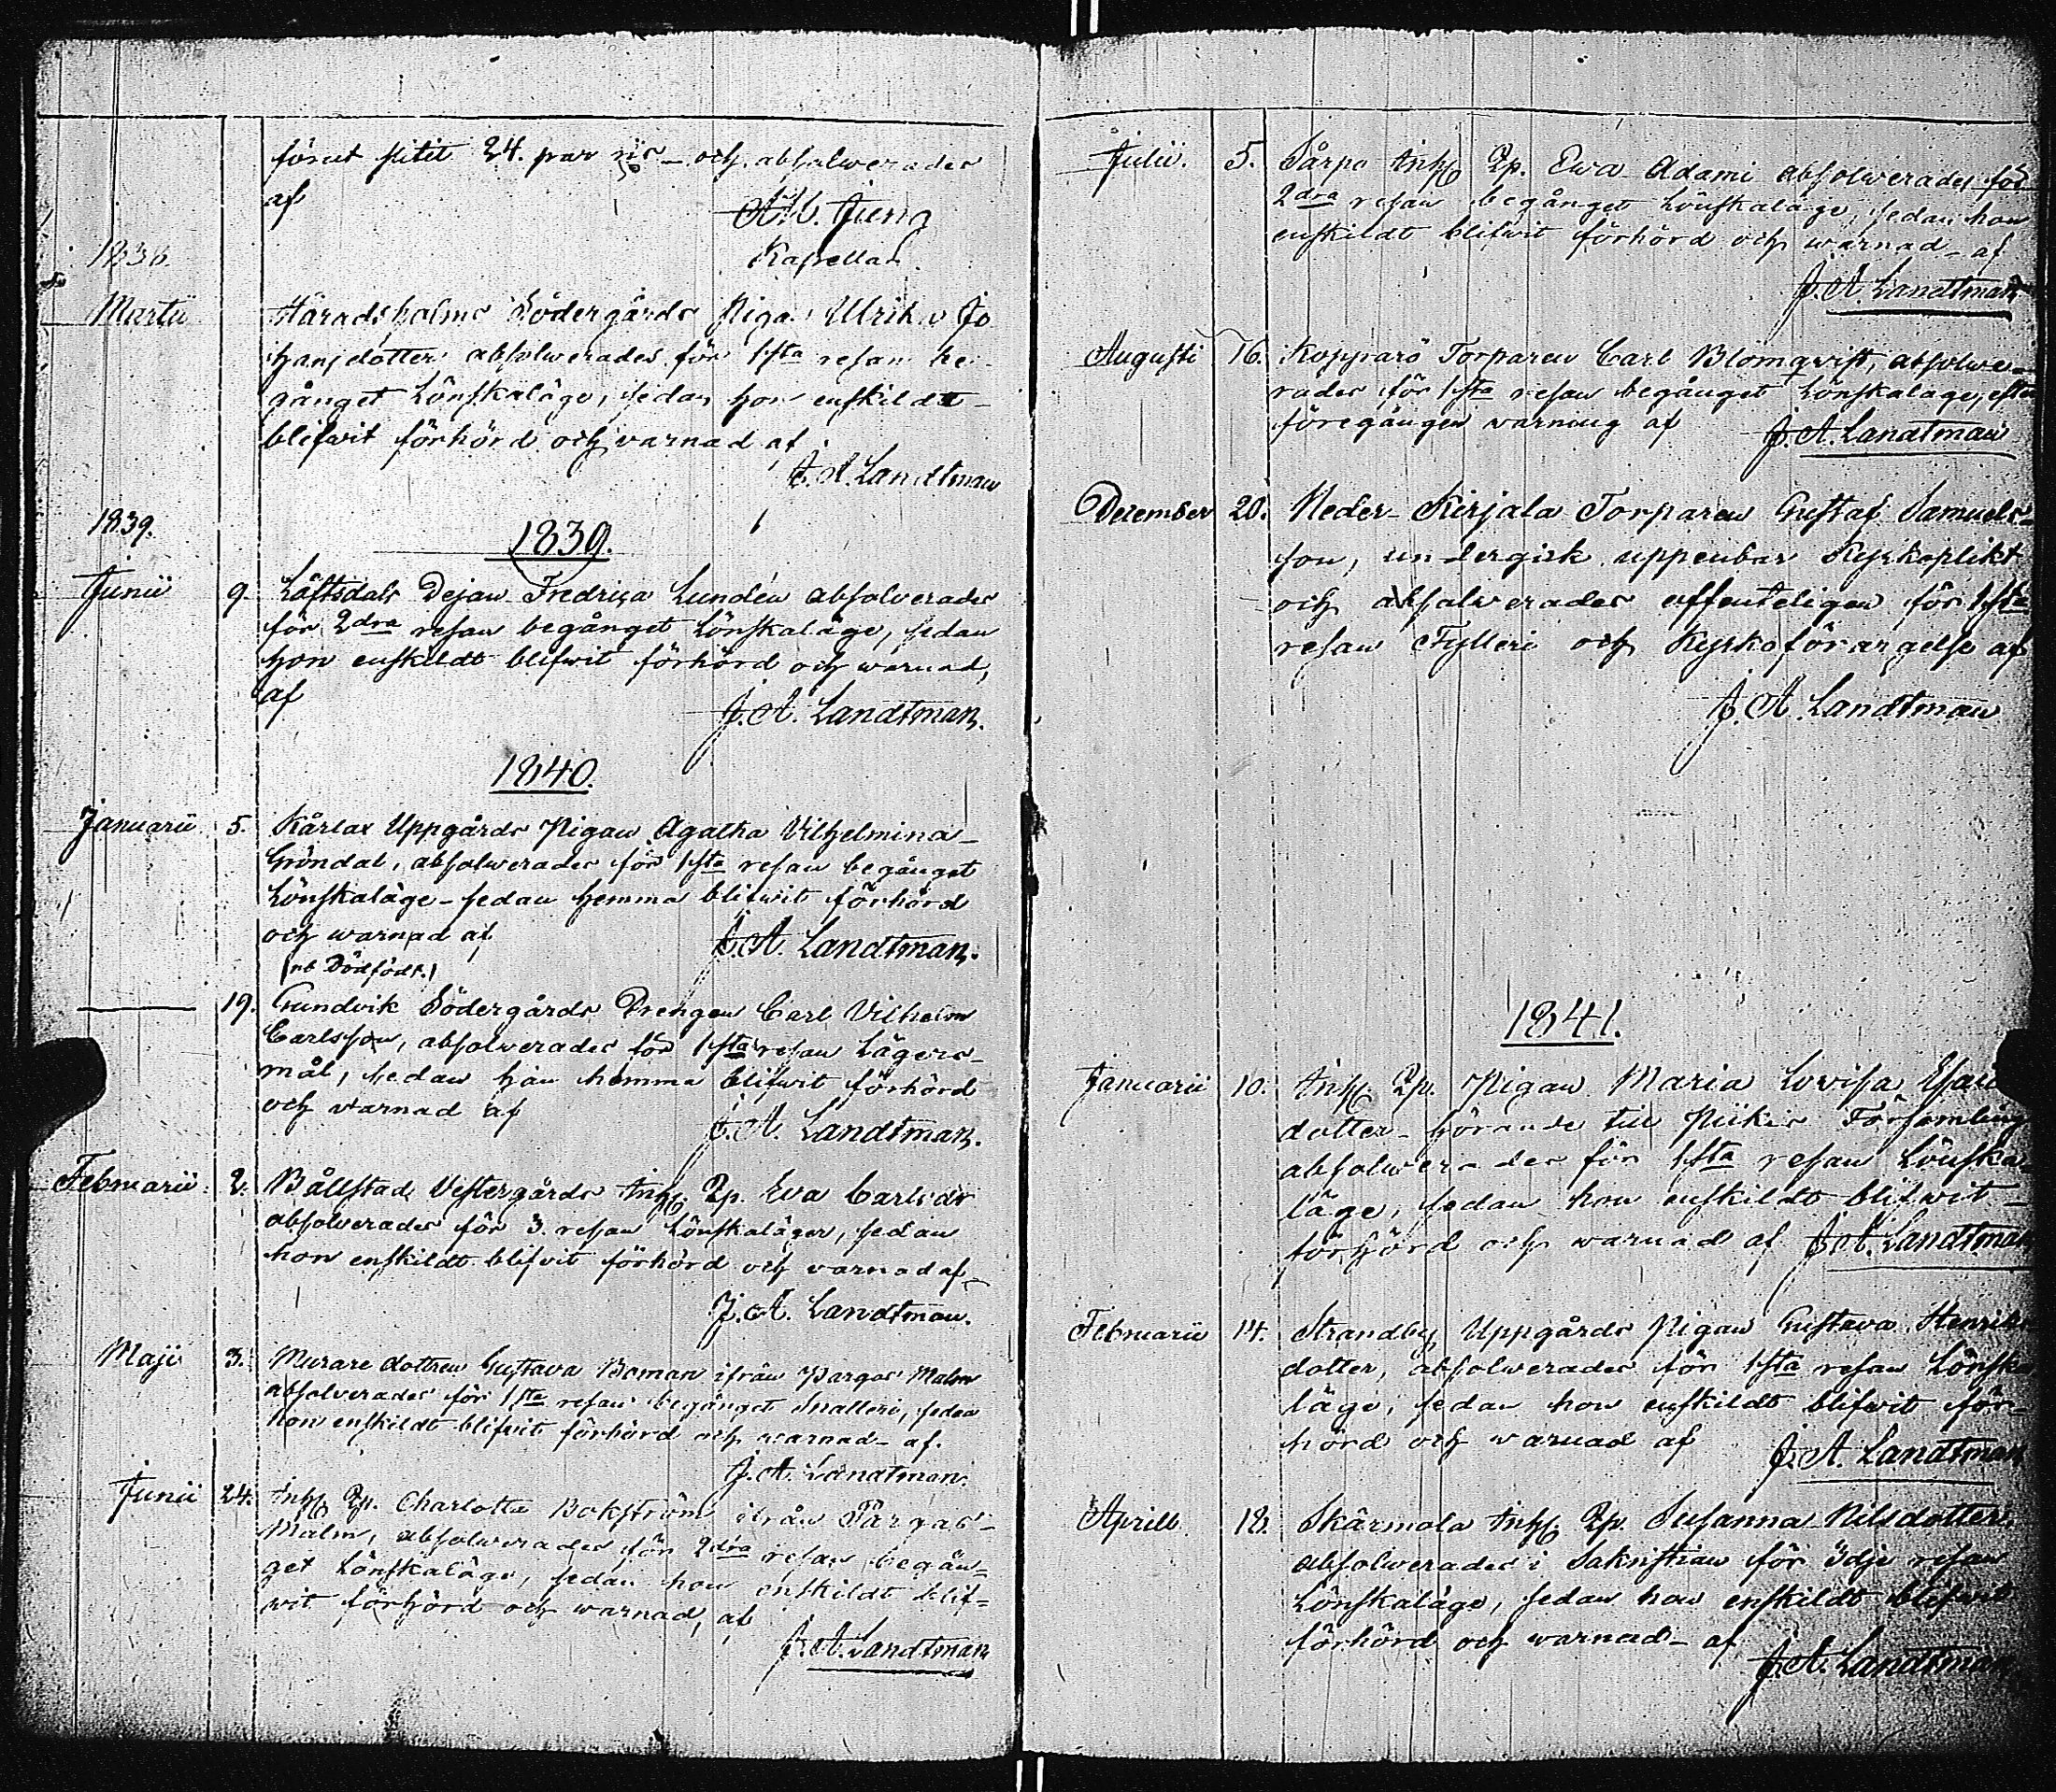 förut slitit 24. par ris - och absolwerades
af
Kapellan.
1838.
Martii Häradsholms Södergårds Pigan Ulrika Jo
hansdotter absolwerades för 1sta resan be-
gånget Lönskaläge, sedan hon enskildt
blifwit förhörd och varnad af
J. A. Landtman
1839.
1839.
Junii 9. Löftsdals Dejan Fredrica Lundén absolverades
för 2dra resan begånget Lönskaläge, sedan
hon enskildt blifwit förhörd och warnad,
af
J. A. Landtman.
1840.
Januarii 5. Kårlax Uppgårds Pigan Agatha Vilhelmina
Gröndal, absolwerades för 1sta resan begånget
Lönskaläge - sedan hemma blifwit förhörd
och warnad af J. A. Landtman.
(nb Dödfödt.)
19. Gundvik Södergårds Drengen Carl Vilhelm
Carlsson, absolverades för 1sta resan Lägers-
mål, sedan han hemma blifwit förhörd
och varnad af
J. A. Landtman.
Februarii 2. Bållstad Vestergårds Inhs Qp. Eva Carlsdr
absolverades för 3. resan Lönskaläger, sedan
hon enskildt blifvit förhörd och varnad af
J. A. Landtman.
Maji 3. Murare dottren Gustava Boman ifrån Pargas Malm
absolverades för 1sta resan begånget Snatteri, sedan
hon enskildt blifvit förhörd och warnad - af.
J. A. Landtman.
Junii 24. Inhs Qp. Charlotta Bokström ifrån Pargas
Malm, absolwerades för 2dra resan begån=
get Lönskaläge, sedan hon enskildt blif=
wit förhörd och warnad, af
J. A. Landtman
Julii. 5. Sårpo Inhs Qp. Ewa Adami absolwerades för
2dra resan begånget Lönskaläge, sedan hon
enskildt blifwit förhörd och warnad - af
J. A. Landtman
Augusti 16. Kopparö Torparen Carl Blomqvist, absolwe-
rades för 1sta resan begånget Lönskaläge, efter
föregången warning af J. A. Landtman
December 20. Neder-Kirjala Torparen Gustaf Samuels-
son, undergick uppenbar Kyrkoplikt
och absolwerades offenteligen för 1sta
resan Fylleri och Kyrkoförargelse af
J. A. Landtman
1841.
Januarii 10. Inhs Qp. Pigan Maria Lovisa
dotter hörande till Pikis Församling
absolwerades för 1sta resan Lönska-
läge, sedan hon enskildt blifwit -
förhörd och warnad af J. A. Landtman
Februarii 14. Strandby Uppgårds Pigan Gustava Henriks
dotter, absolwerades för 1sta resan Lönska
läge, sedan hon enskildt blifwit för-
hörd och warnad af J. A. Landtman
Aprill 18. Skärmola Inhs Qp. Susanna Nilsdotter
absolwerades i Sakristian för 3dje resan
Lönskaläge, sedan hon enskildt blifwit
förhörd och warnad - af
J. A. Landtman